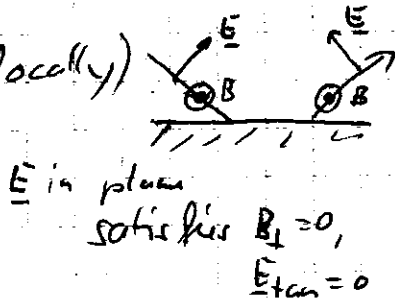 locally)
E
E
B
B
E in plane
satisfies B⊥ = 0,
E tan = 0